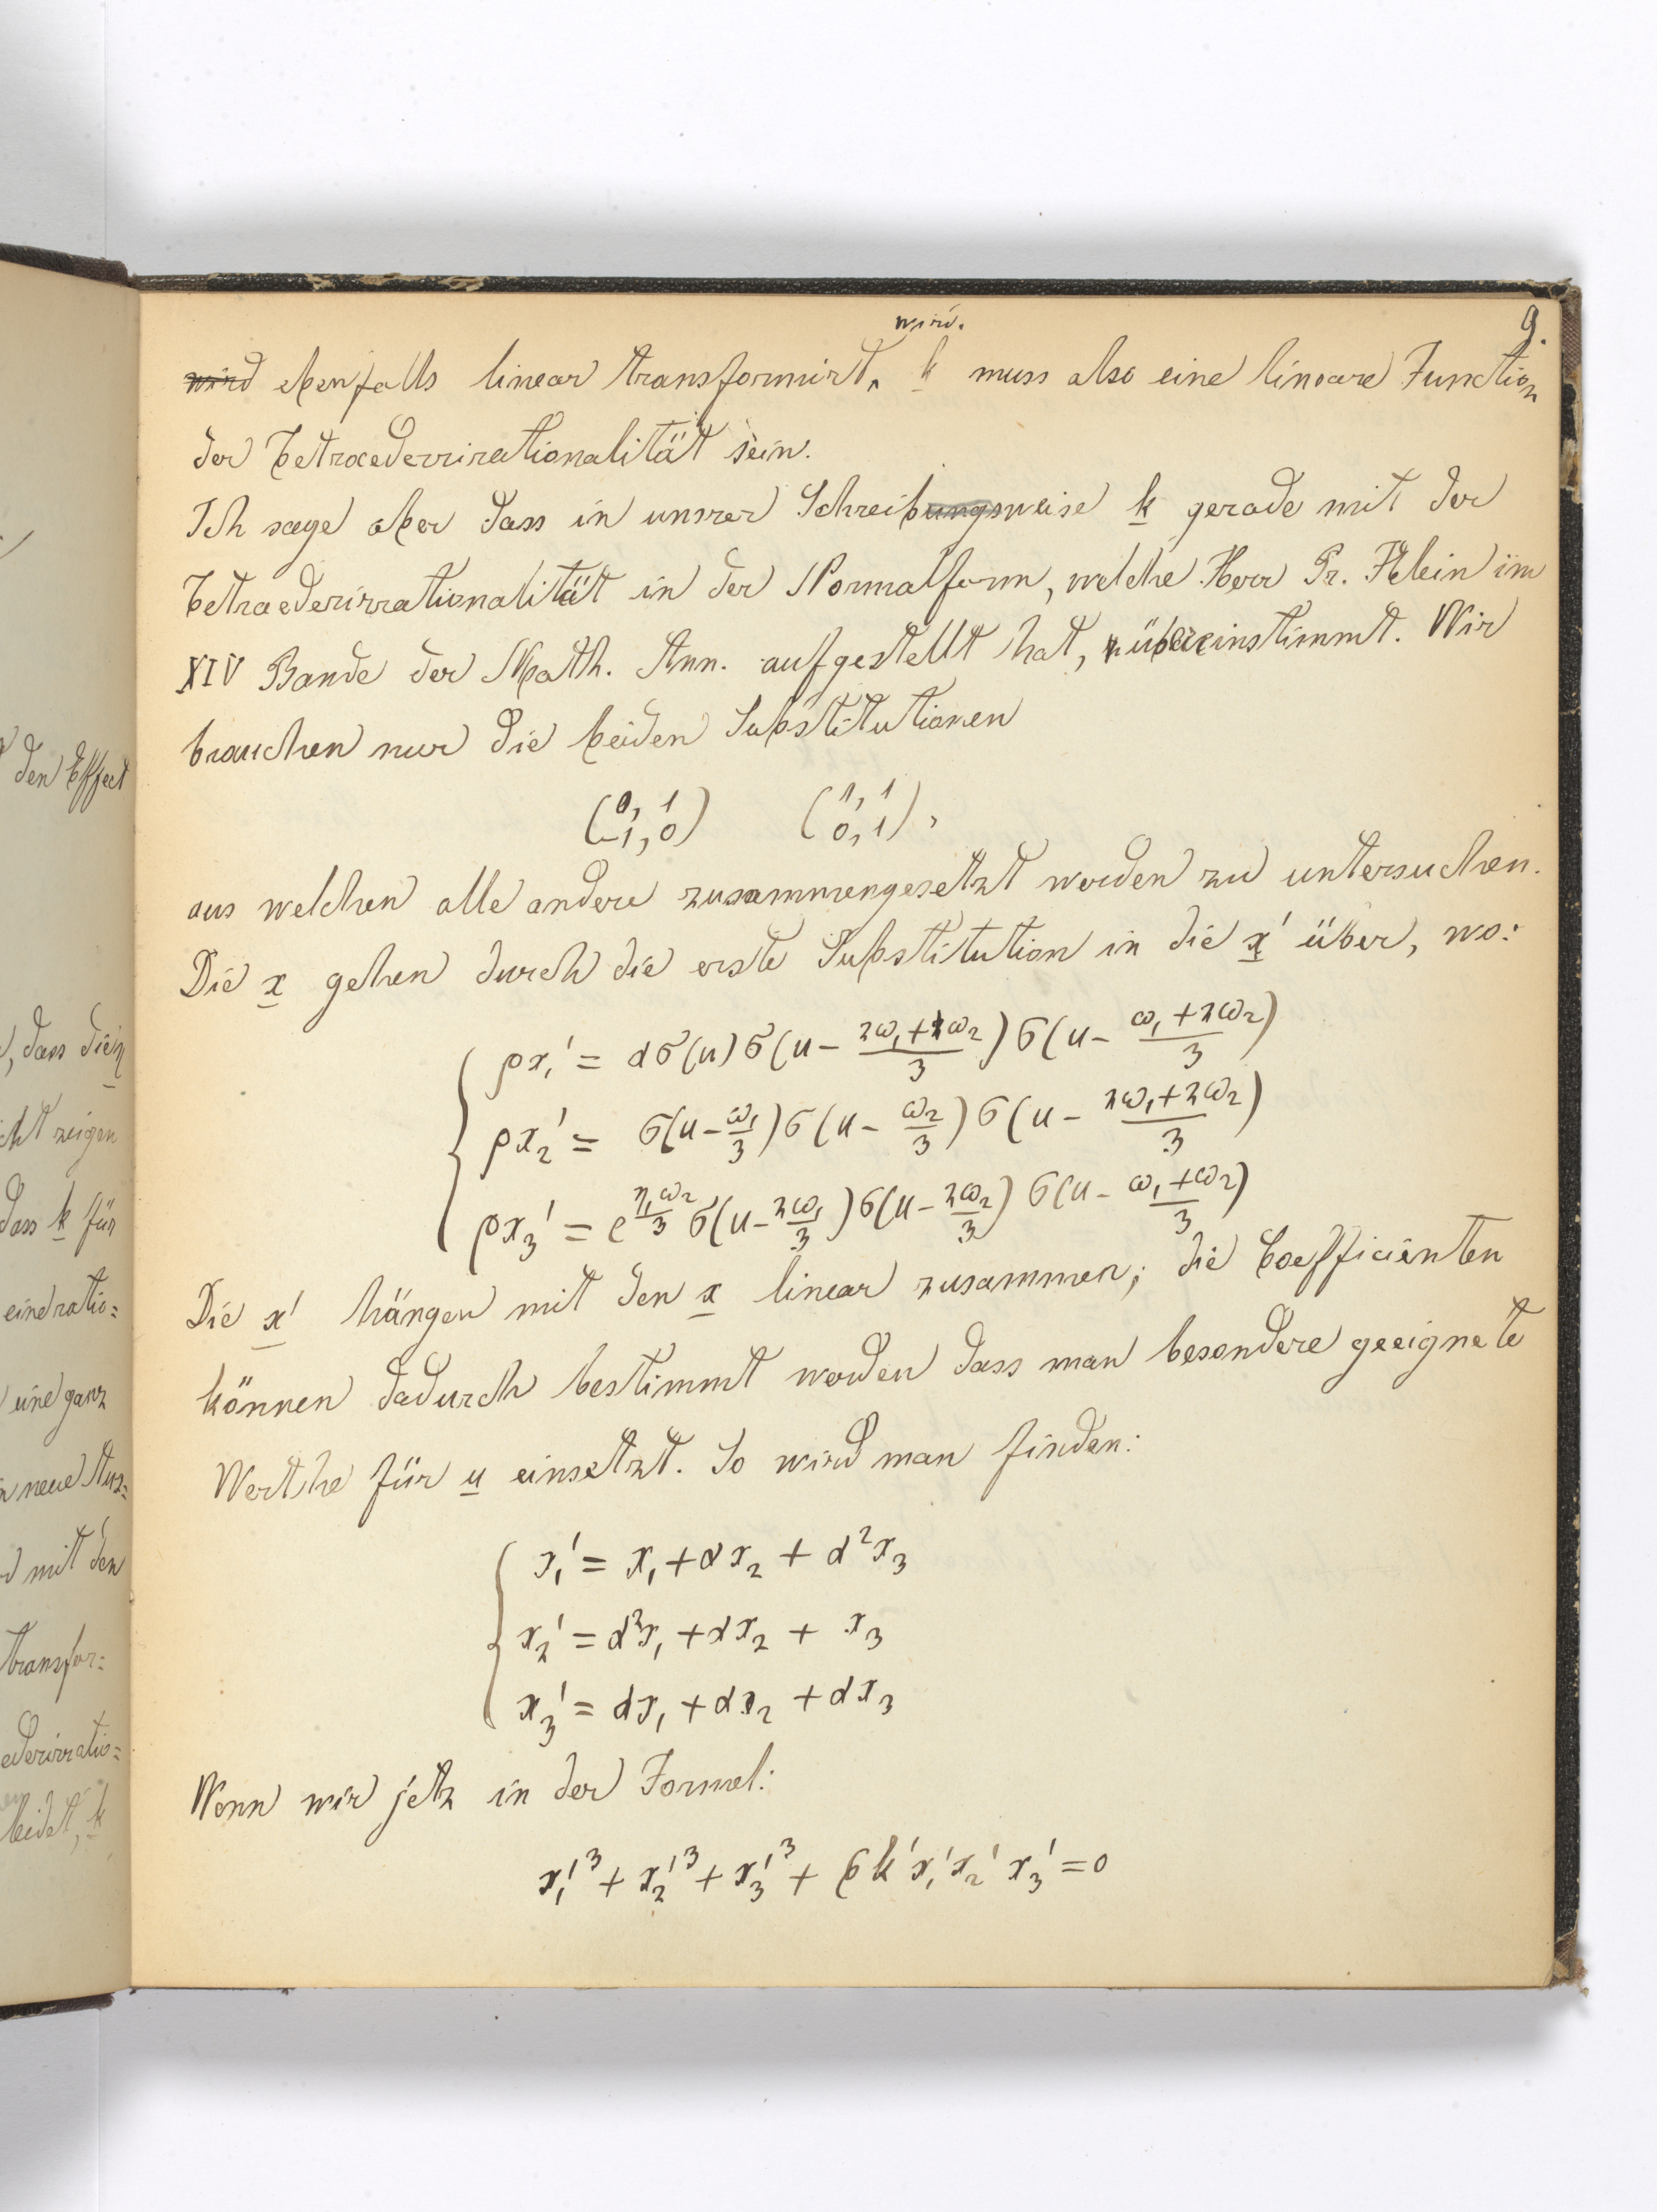 9.
wird.
wird ebenfalls linear transformirt, k muss also eine lineare Function
der Tetraederrirationalität sein.
Ich sage aber dass in unsrer Schreibungsweise k gerade mit der
Tetraederirrationalität in der Normalform, welche Herr Pr. Klein im
XIV Bande der Math. Ann. aufgestellt hat, übereinstimmt. Wir
brauchen nur die beiden Substitutionen
(0, 1 / -1, 0) (1, 1 / 0, 1),
aus welchen alle andere zusammengesetzt werden zu untersuchen.
Die x gehen durch die erste Substitution in die x' über, wo:
ρx₁' = ασ(u)σ(u - (2ω₁+ω₂)/3)σ(u - (ω₁+2ω₂)/3)
ρx₂' = σ(u - ω₁/3)σ(u - ω₂/3)σ(u - (2ω₁+2ω₂)/3)
ρx₃' = e^(η₁ω₂/3) σ(u - 2ω₁/3)σ(u - 2ω₂/3)σ(u - (ω₁+ω₂)/3)
Die x' hängen mit den x linear zusammen; die Coefficienten
können dadurch bestimmt werden dass man besondere geeignete
Werthe für u einsetzt. So wird man finden:
x₁' = x₁ + αx₂ + α²x₃
x₂' = α²x₁ + αx₂ + x₃
x₃' = αx₁ + αx₂ + αx₃
Wenn wir jetz in der Formel:
x₁'³ + x₂'³ + x₃'³ + 6k'x₁'x₂'x₃' = 0
den Effect
, dass die η
cht zeigen
dass k für
eine ratio=
eine ganz
neue Aus=
mit den
transfor=
ederirratio=
leidet, k